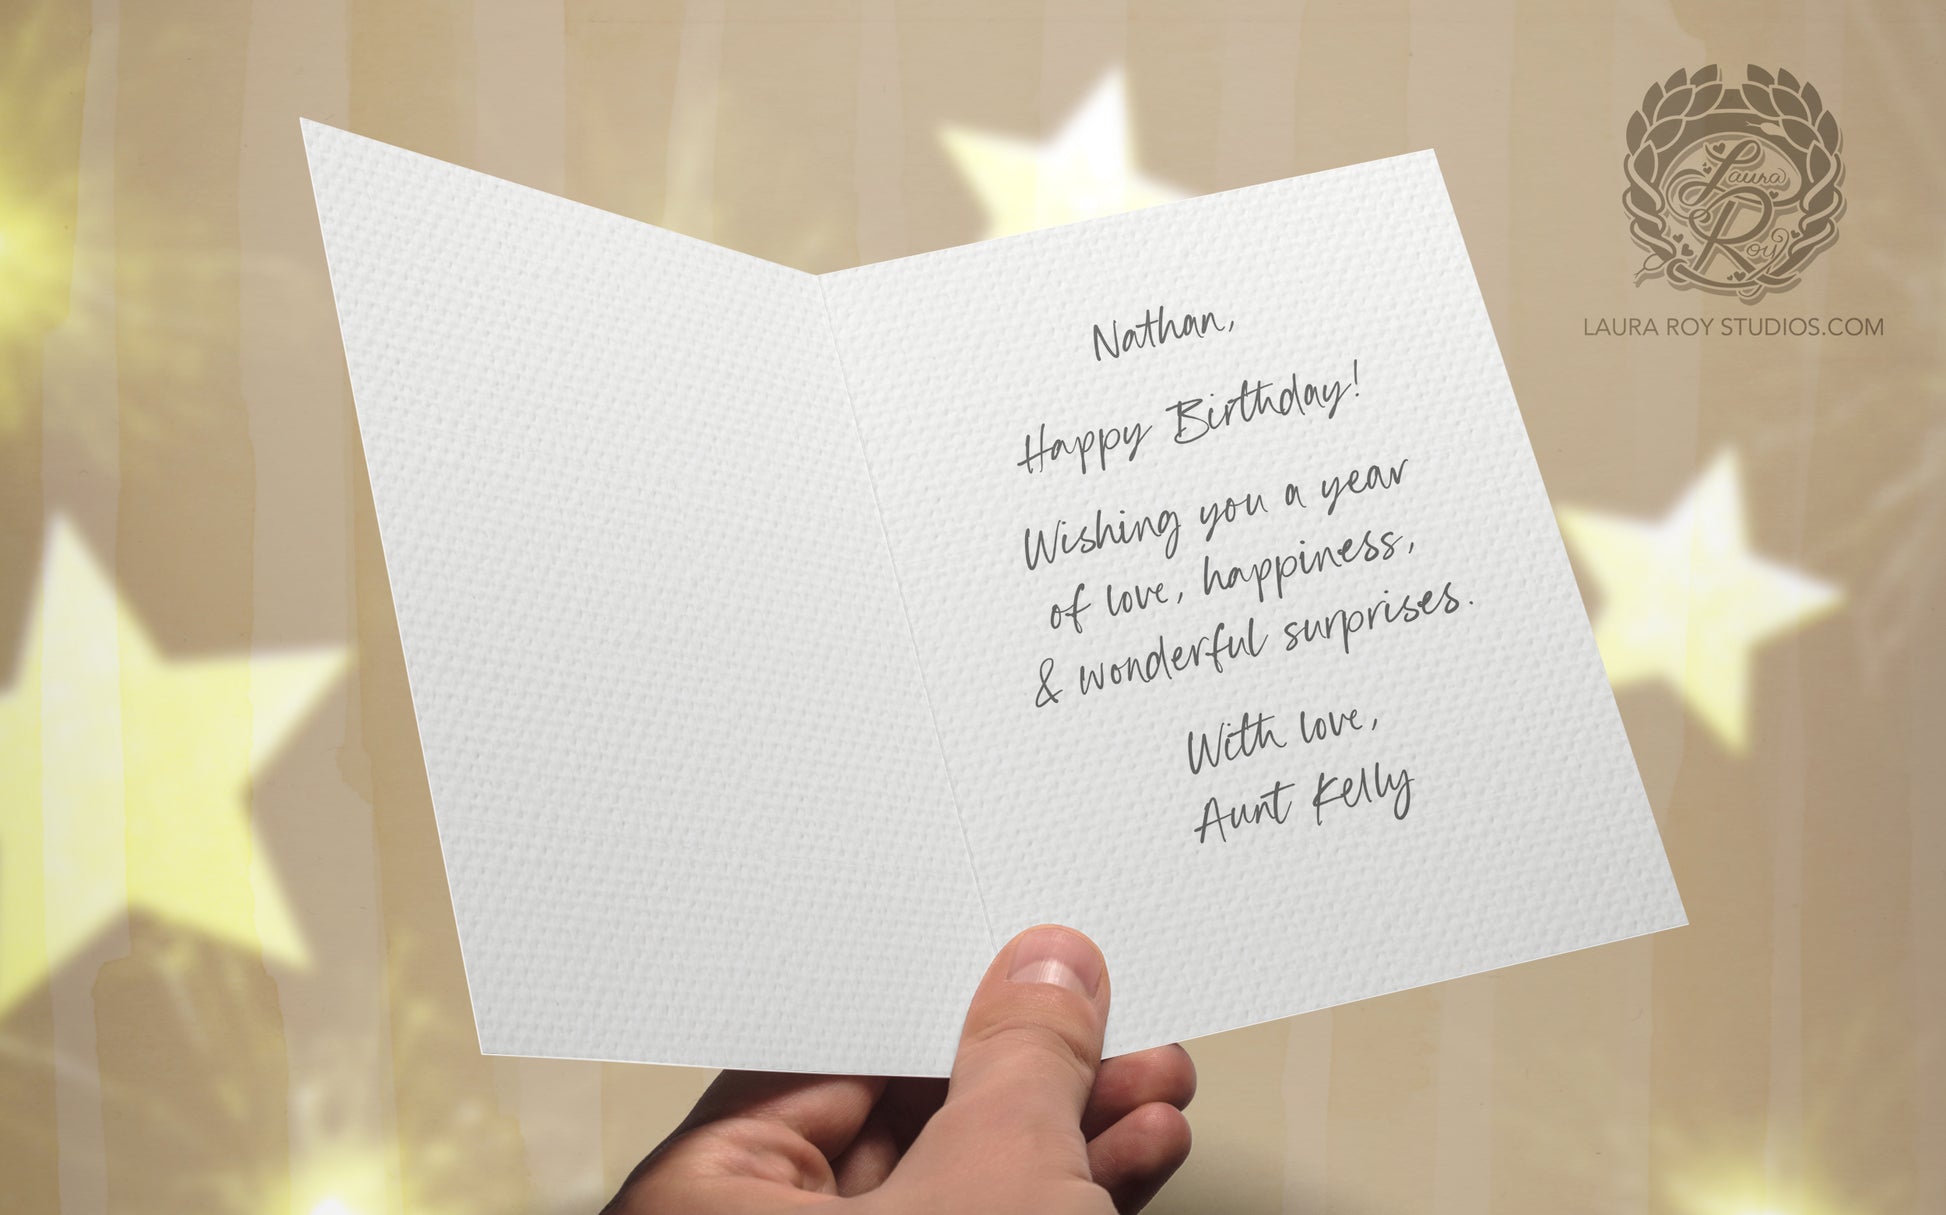 Nathan,
Happy Birthday!
Wishing you a year
of love, happiness,
& wonderful surprises.
With love,
Aunt Kelly
Laura
Roy
LAURA ROY STUDIOS.COM